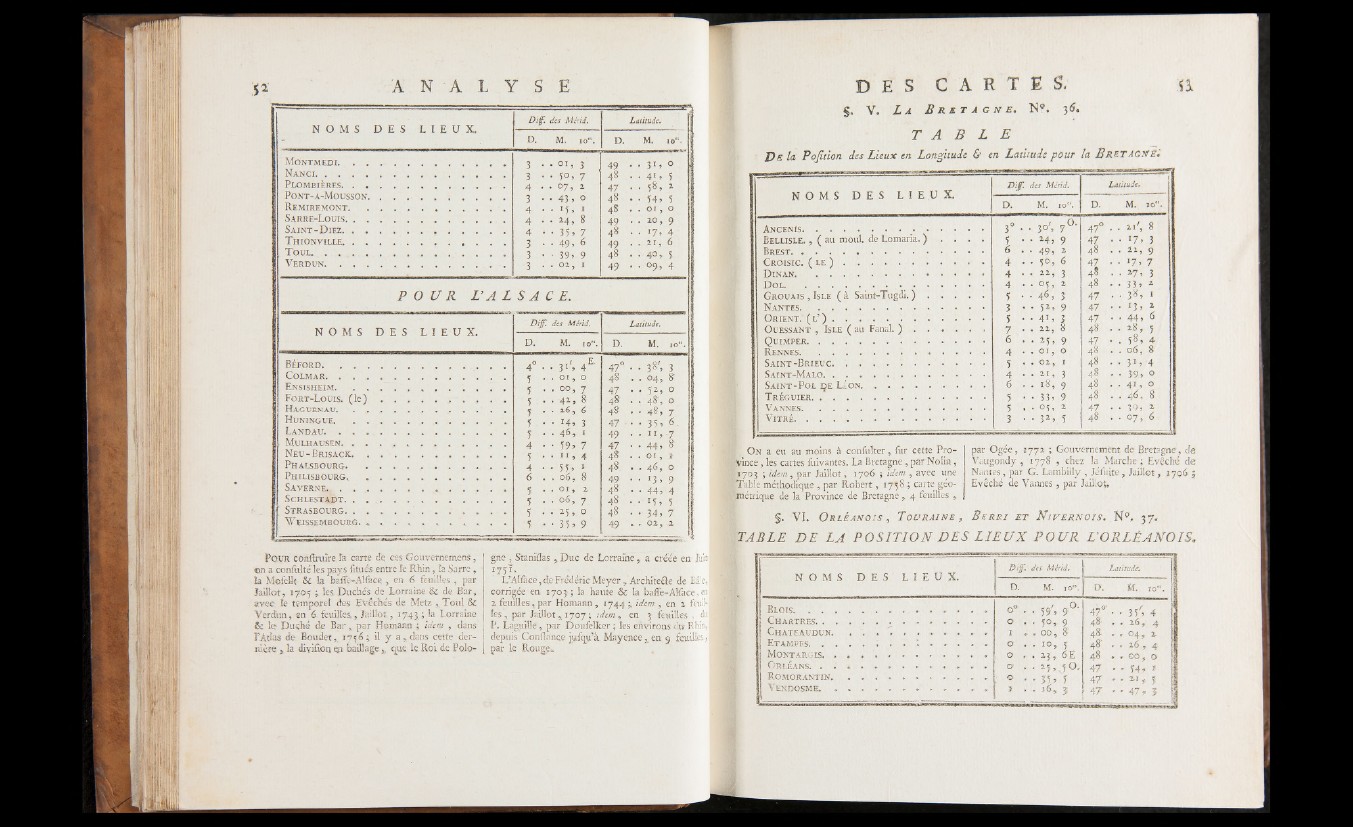 52 ANALYSE
NOMS DES LIEUX. Diff. des Mérid. Latitude.
D. M. 10". D. M. 10".
MONTMEDI. 3 . . 01, 3 49 . . 31, 0
NANCI. 3 . . 50, 7 48 . . 41, 5
PLOMBIÈRES. 4 . . 07, 2 47 . . 58, 2
PONT-A-MOUSSON. 3 . . 43, 0 48 . . 54, 5
REMIREMONT. 4 . . 15, 1 48 . . 01, 0
SARRE-LOUIS. 4 . . 24, 8 49 . . 20, 9
SAINT-DIEZ. 4 . . 35, 7 48 . . 17, 4
THIONVILLE. 3 . . 49, 6 49 . . 21, 6
TOUL. 3 . . 39, 9 48 . . 40, 5
VERDUN. 3 . . 02, 1 49 . . 09, 4
POUR L'ALSACE.
NOMS DES LIEUX. Diff. des Mérid. Latitude.
D. M. 10". D. M. 10".
BÉFORD. 4° . . 31', 4E. 47° . . 38', 3
COLMAR. 5 . . 01, 0 48 . . 04, 8
ENSISHEIM. 5 . . 00, 7 47 . . 52, 0
FORT-LOUIS. (le) 5 . . 42, 8 48 . . 48, 0
HAGUENAU. 5 . . 26, 6 48 . . 48, 7
HUNINGUE. 5 . . 14, 3 47 . . 35, 6
LANDAU. 5 . . 46, 1 49 . . 11, 7
MULHAUSEN. 4 . . 59, 7 47 . . 44, 8
NEU-BRISACK. 5 . . 11, 4 48 . . 01, 1
PHALSBOURG. 4 . . 55, 1 48 . . 46, 0
PHILISBOURG. 6 . . 06, 8 49 . . 13, 9
SAVERNE. 5 . . 01, 2 48 . . 44, 4
SCHLESTADT. 5 . . 06, 7 48 . . 15, 5
STRASBOURG. 5 . . 25, 0 48 . . 34, 7
WEISSEMBOURG. 5 . . 35, 9 49 . . 02, 2
POUR construire la carte de ces Gouvernemens,
on a consulté les pays situés entre le Rhin, la Sarre,
la Moselle & la basse-Alsace, en 6 feuilles, par
Jaillot, 1705 ; les Duchés de Lorraine & de Bar,
avec le temporel des Evêchés de Metz, Toul &
Verdun, en 6 feuilles, Jaillot, 1743 ; la Lorraine
& le Duché de Bar, par Humann ; idem, dans
l'Atlas de Boudet, 1756 ; il y a, dans cette der-
nière, la division en baillage, que le Roi de Polo-
gne, Stanislas, Duc de Lorraine, a créée en
1751.
L'Alsace, de Frédéric Meyer, Architecte de
corrigée en 1703 ; la haute & la basse-Alsace, en
2 feuilles, par Homann, 1744 ; idem, en 2 feuil-
les, par Jaillot, 1707 ; idem, en 3 feuilles, du
P. Laguille, par Doufelker ; les environs du Rhin,
depuis Constance jusqu'à Mayence, en 9 feuilles,
par le Rouge.
DES CARTES. 53
§. V. LA BRETAGNE. N°. 36.
TABLE
De la Position des Lieux en Longitude & en Latitude pour la BRETAGNE.
NOMS DES LIEUX. Diff. des Mérid. Latitude.
D. M. 10". D. M. 10".
ANCENIS. 3° . . 30', 7O. 47° . . 21', 8
BELLISLE., ( au moul. de Lomaria. ) 5 . . 24, 9 47 . . 17, 3
BREST. 6 . . 49, 2 48 . . 22, 9
CROISIC. ( LE ) 4 . . 50, 6 47 . . 17, 7
DINAN. 4 . . 22, 3 48 . . 27, 3
DOL. 4 . . 05, 2 48 . . 33, 2
GROUAIS, ISLE ( à Saint-Tugdi. ) 5 . . 46, 3 47 . . 38, 1
NANTES. 3 . . 52, 9 47 . . 13, 2
ORIENT. ( L' ) 5 . . 41, 3 47 . . 44, 6
OUESSANT, ISLE ( au Fanal. ) 7 . . 22, 8 48 . . 28, 5
QUIMPER. 6 . . 25, 9 47 . . 58, 4
RENNES. 4 . . 01, 0 48 . . 06, 8
SAINT-BRIEUC. 5 . . 02, 1 48 . . 31, 4
SAINT-MALO. 4 . . 21, 3 48 . . 39, 0
SAINT-POL DE LÉON. 6 . . 18, 9 48 . . 41, 0
TRÉGUIER. 5 . . 33, 9 48 . . 46, 8
VANNES. 5 . . 05, 2 47 . . 39, 2
VITRÉ. 3 . . 32, 5 48 . . 07, 6
ON a eu au moins à consulter, sur cette Pro-
vince, les cartes suivantes. La Bretagne, par Nolin,
1703 ; idem, par Jaillot, 1706 ; idem, avec une
Table méthodique, par Robert, 1758 ; carte géo-
métrique de la Province de Bretagne, 4 feuilles,
par Ogée, 1772 ; Gouvernement de Bretagne, de
Vaugondy, 1778, chez la Marche ; Evêché de
Nantes, par G. Lambilly, Jésuite, Jaillot, 1706 ;
Evêché de Vannes, par Jaillot.
§. VI. ORLÉANOIS, TOURAINE, BERRI ET NIVERNOIS. N°. 37.
TABLE DE LA POSITION DES LIEUX POUR L'ORLÉANOIS.
NOMS DES LIEUX. Diff. des Mérid. Latitude.
D. M. 10". D. M. 10".
BLOIS. 0° . . 59', 9O. 47° . . 35', 4
CHARTRES. 0 . . 50, 9 48 . . 26, 4
CHATEAUDUN. 1 . . 00, 8 48 . . 04, 2
ETAMPES. 0 . . 10, 5 48 . . 26, 4
MONTARGIS. 0 . . 23, 6E 48 . . 00, 0
ORLÉANS. 0 . . 25, 5O. 47 . . 54, 1
ROMORANTIN. 0 . . 35, 5 47 . . 21, 5
VENDOSME. 1 . . 16, 3 47 . . 47, 3